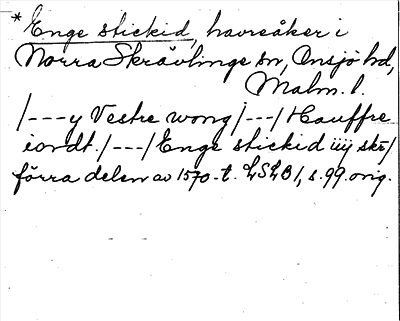 * Enge stickid, havreåker i
Norra Skrävlinge sn, Onsjö hd,
Malm. l.
/---y Vestre wong/---/Hauffre
iordt./---/Enge stickid iiij sk/
förra delen av 1570-t. LSLB 1, s. 99. orig.